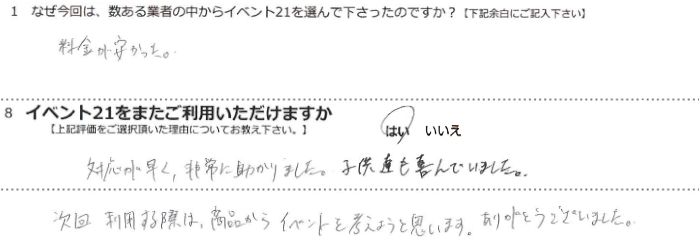 1 なぜ今回は、数ある業者の中からイベント21を選んで下さったのですか？【下記余白にご記入下さい】
料金が安かった。
8 イベント21をまたご利用いただけますか
【上記評価をご選択頂いた理由についてお教え下さい。】
はい いいえ
対応が早く，非常に助かりました。子供達も喜んでいました。
次回 利用する際は、商品から イベントを考えようと思います。ありがとうございました。